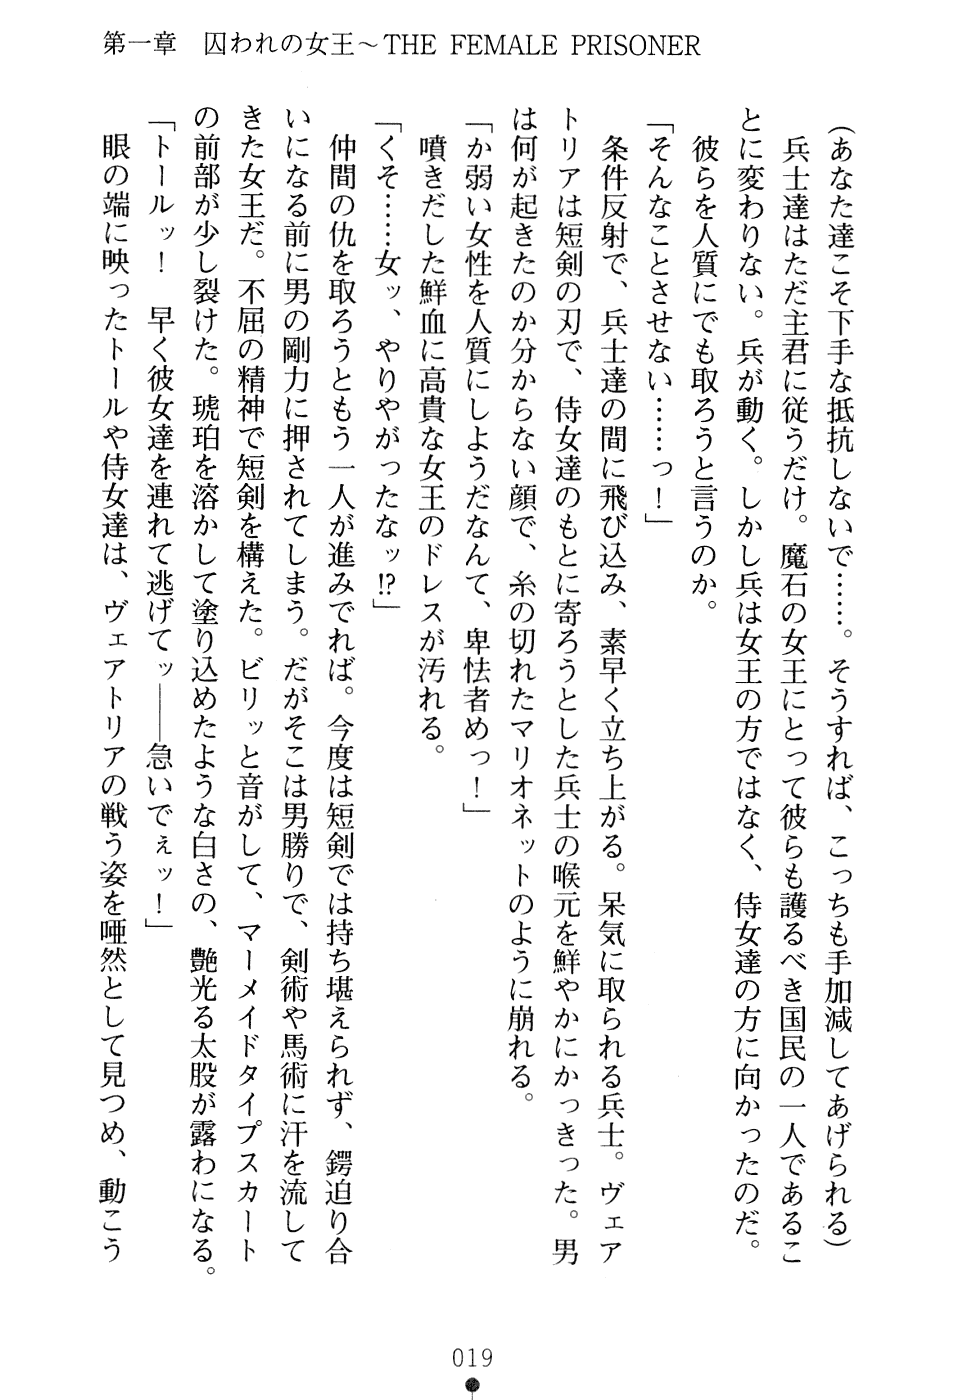 第一章　囚われの女王～THE FEMALE PRISONER
（あなた達こそ下手な抵抗しないで……。そうすれば、こっちも手加減してあげられる）
　兵士達はただ主君に従うだけ。魔石の女王にとって彼らも護るべき国民の一人であるこ
とに変わりない。兵が動く。しかし兵は女王の方ではなく、侍女達の方に向かったのだ。
　彼らを人質にでも取ろうと言うのか。
「そんなことさせない……っ！」
　条件反射で、兵士達の間に飛び込み、素早く立ち上がる。呆気に取られる兵士。ヴェア
トリアは短剣の刃で、侍女達のもとに寄ろうとした兵士の喉元を鮮やかにかっきった。男
は何が起きたのか分からない顔で、糸の切れたマリオネットのように崩れる。
「か弱い女性を人質にしようだなんて、卑怯者めっ！」
　噴きだした鮮血に高貴な女王のドレスが汚れる。
「くそ……女ッ、やりやがったなッ!?」
　仲間の仇を取ろうともう一人が進みでれば。今度は短剣では持ち堪えられず、鍔迫り合
いになる前に男の剛力に押されてしまう。だがそこは男勝りで、剣術や馬術に汗を流して
きた女王だ。不屈の精神で短剣を構えた。ビリッと音がして、マーメイドタイプスカート
の前部が少し裂けた。琥珀を溶かして塗り込めたような白さの、艶光る太股が露わになる。
「トールッ！　早く彼女達を連れて逃げてッ――急いでぇッ！」
　眼の端に映ったトールや侍女達は、ヴェアトリアの戦う姿を唖然として見つめ、動こう
019